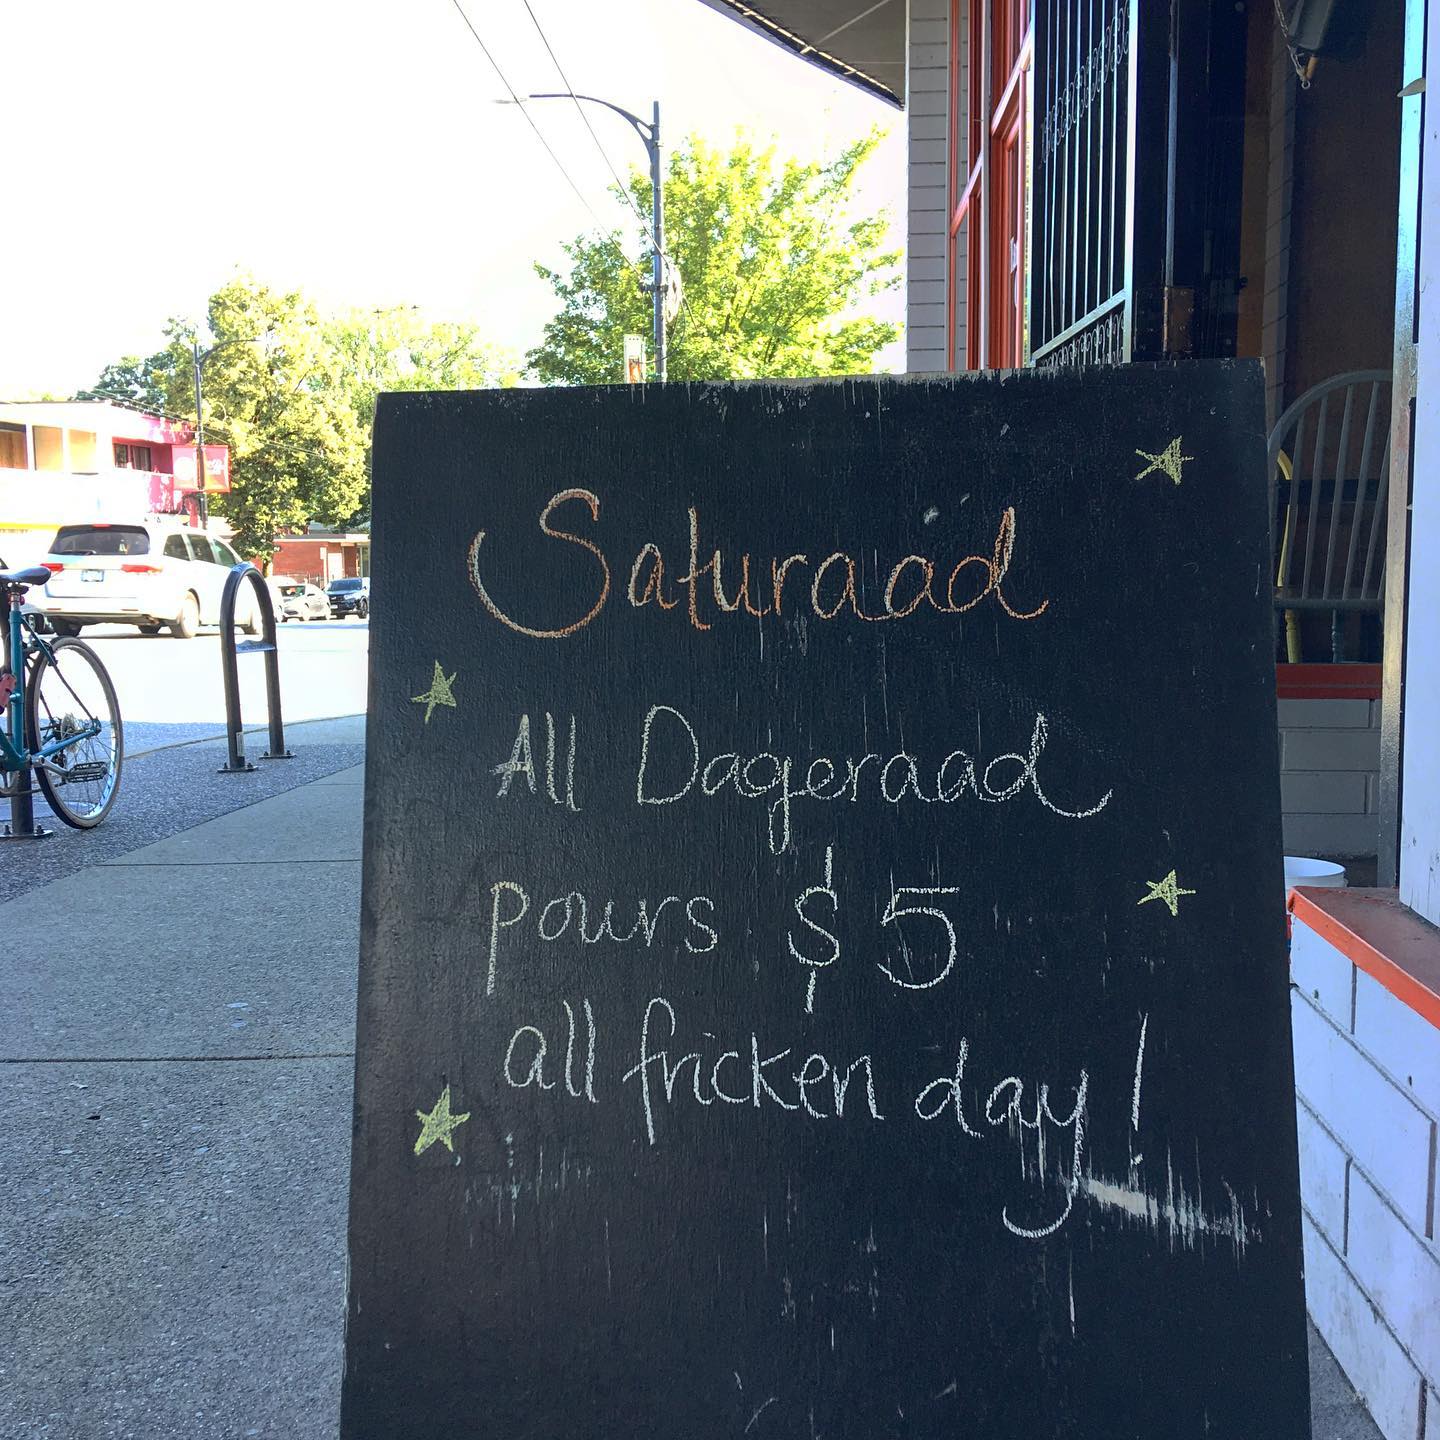 Saturaad
All Dageraad
pours $5
all fricken day!